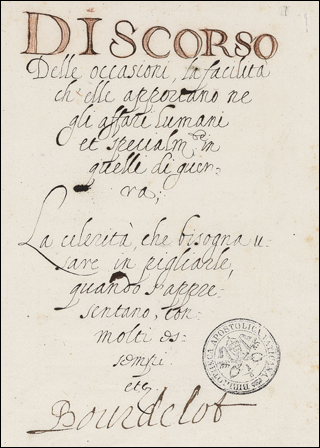 DISCORSO
Delle occasioni, la facilità
ch'elle apportano ne
gli affari humani
et specialm.te in
quelli di guer-
ra,
La celerità, che bisogna u-
sare in pigliarle,
quando s'appre-
sentano, con
molti es-
sempi
etc
Bourdelot
BIBLIOTHECA APOSTOLICA VATICANA